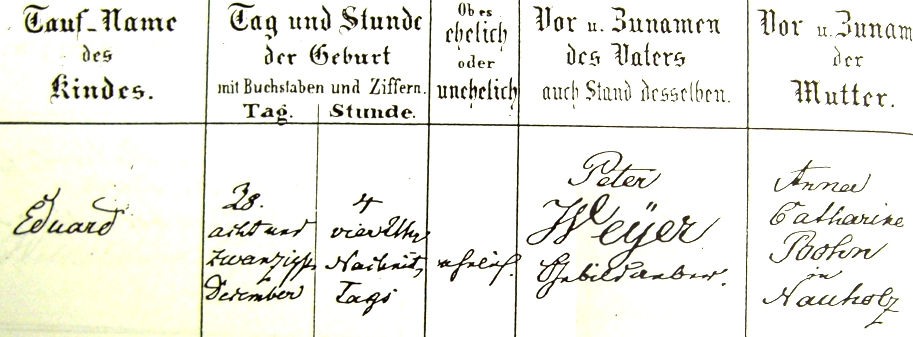 Tauf-Name
des
Kindes.
Tag und Stunde
der Geburt
mit Buchstaben und Ziffern.
Tag. Stunde.
Ob es
ehelich
oder
unehelich
Vor u. Zunamen
des Vaters
auch Stand desselben.
Vor u. Zunam
der
Mutter.
Eduard
28.
acht und
zwanzigst
Dezember
4
vier Uhr
Nachmit,
Tags
ehelich.
Peter
Weÿer
Anna
Catharine
Bohn
in
Nauholz